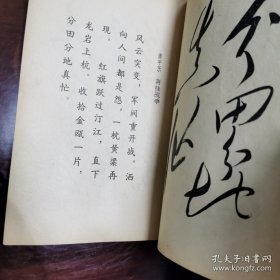 分田分地
真忙
清平乐 蒋桂战争
风云突变，军阀重开战。洒
向人间都是怨，一枕黄粱再
现。 红旗跃过汀江，直下
龙岩上杭。收拾金瓯一片，
分田分地真忙。
孔夫子旧书网